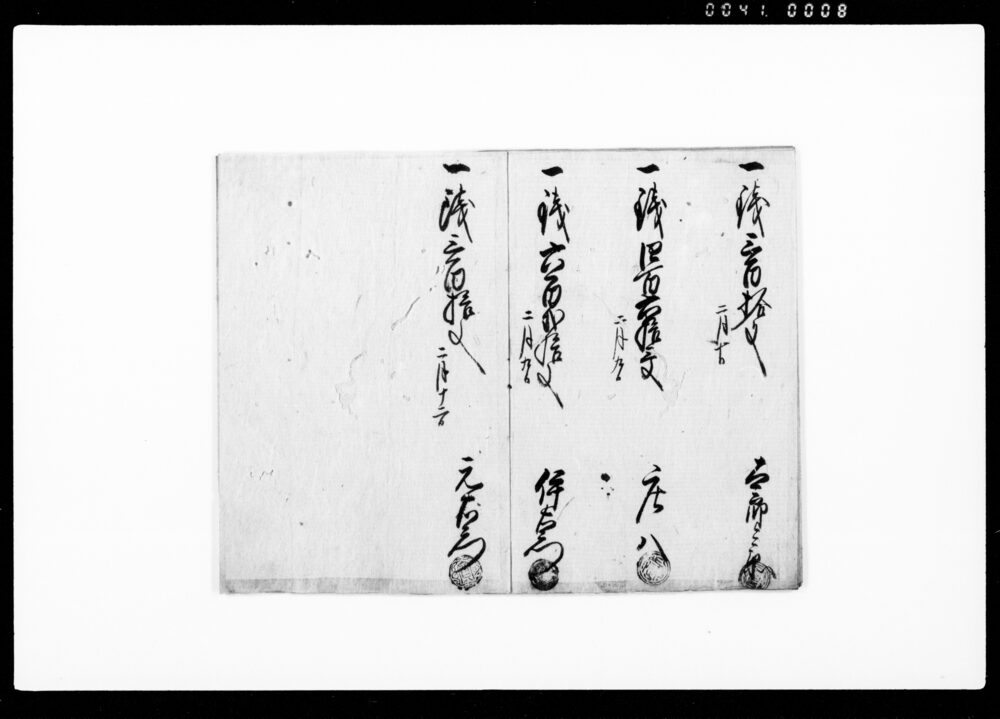 0041. 0008
一銭三百拾文
二月十日
一銭四百六拾文
二月九日
庄八
一銭六百弐拾文
二月九日
伊右衛門
一銭三百拾文
二月十二日
元右衛門